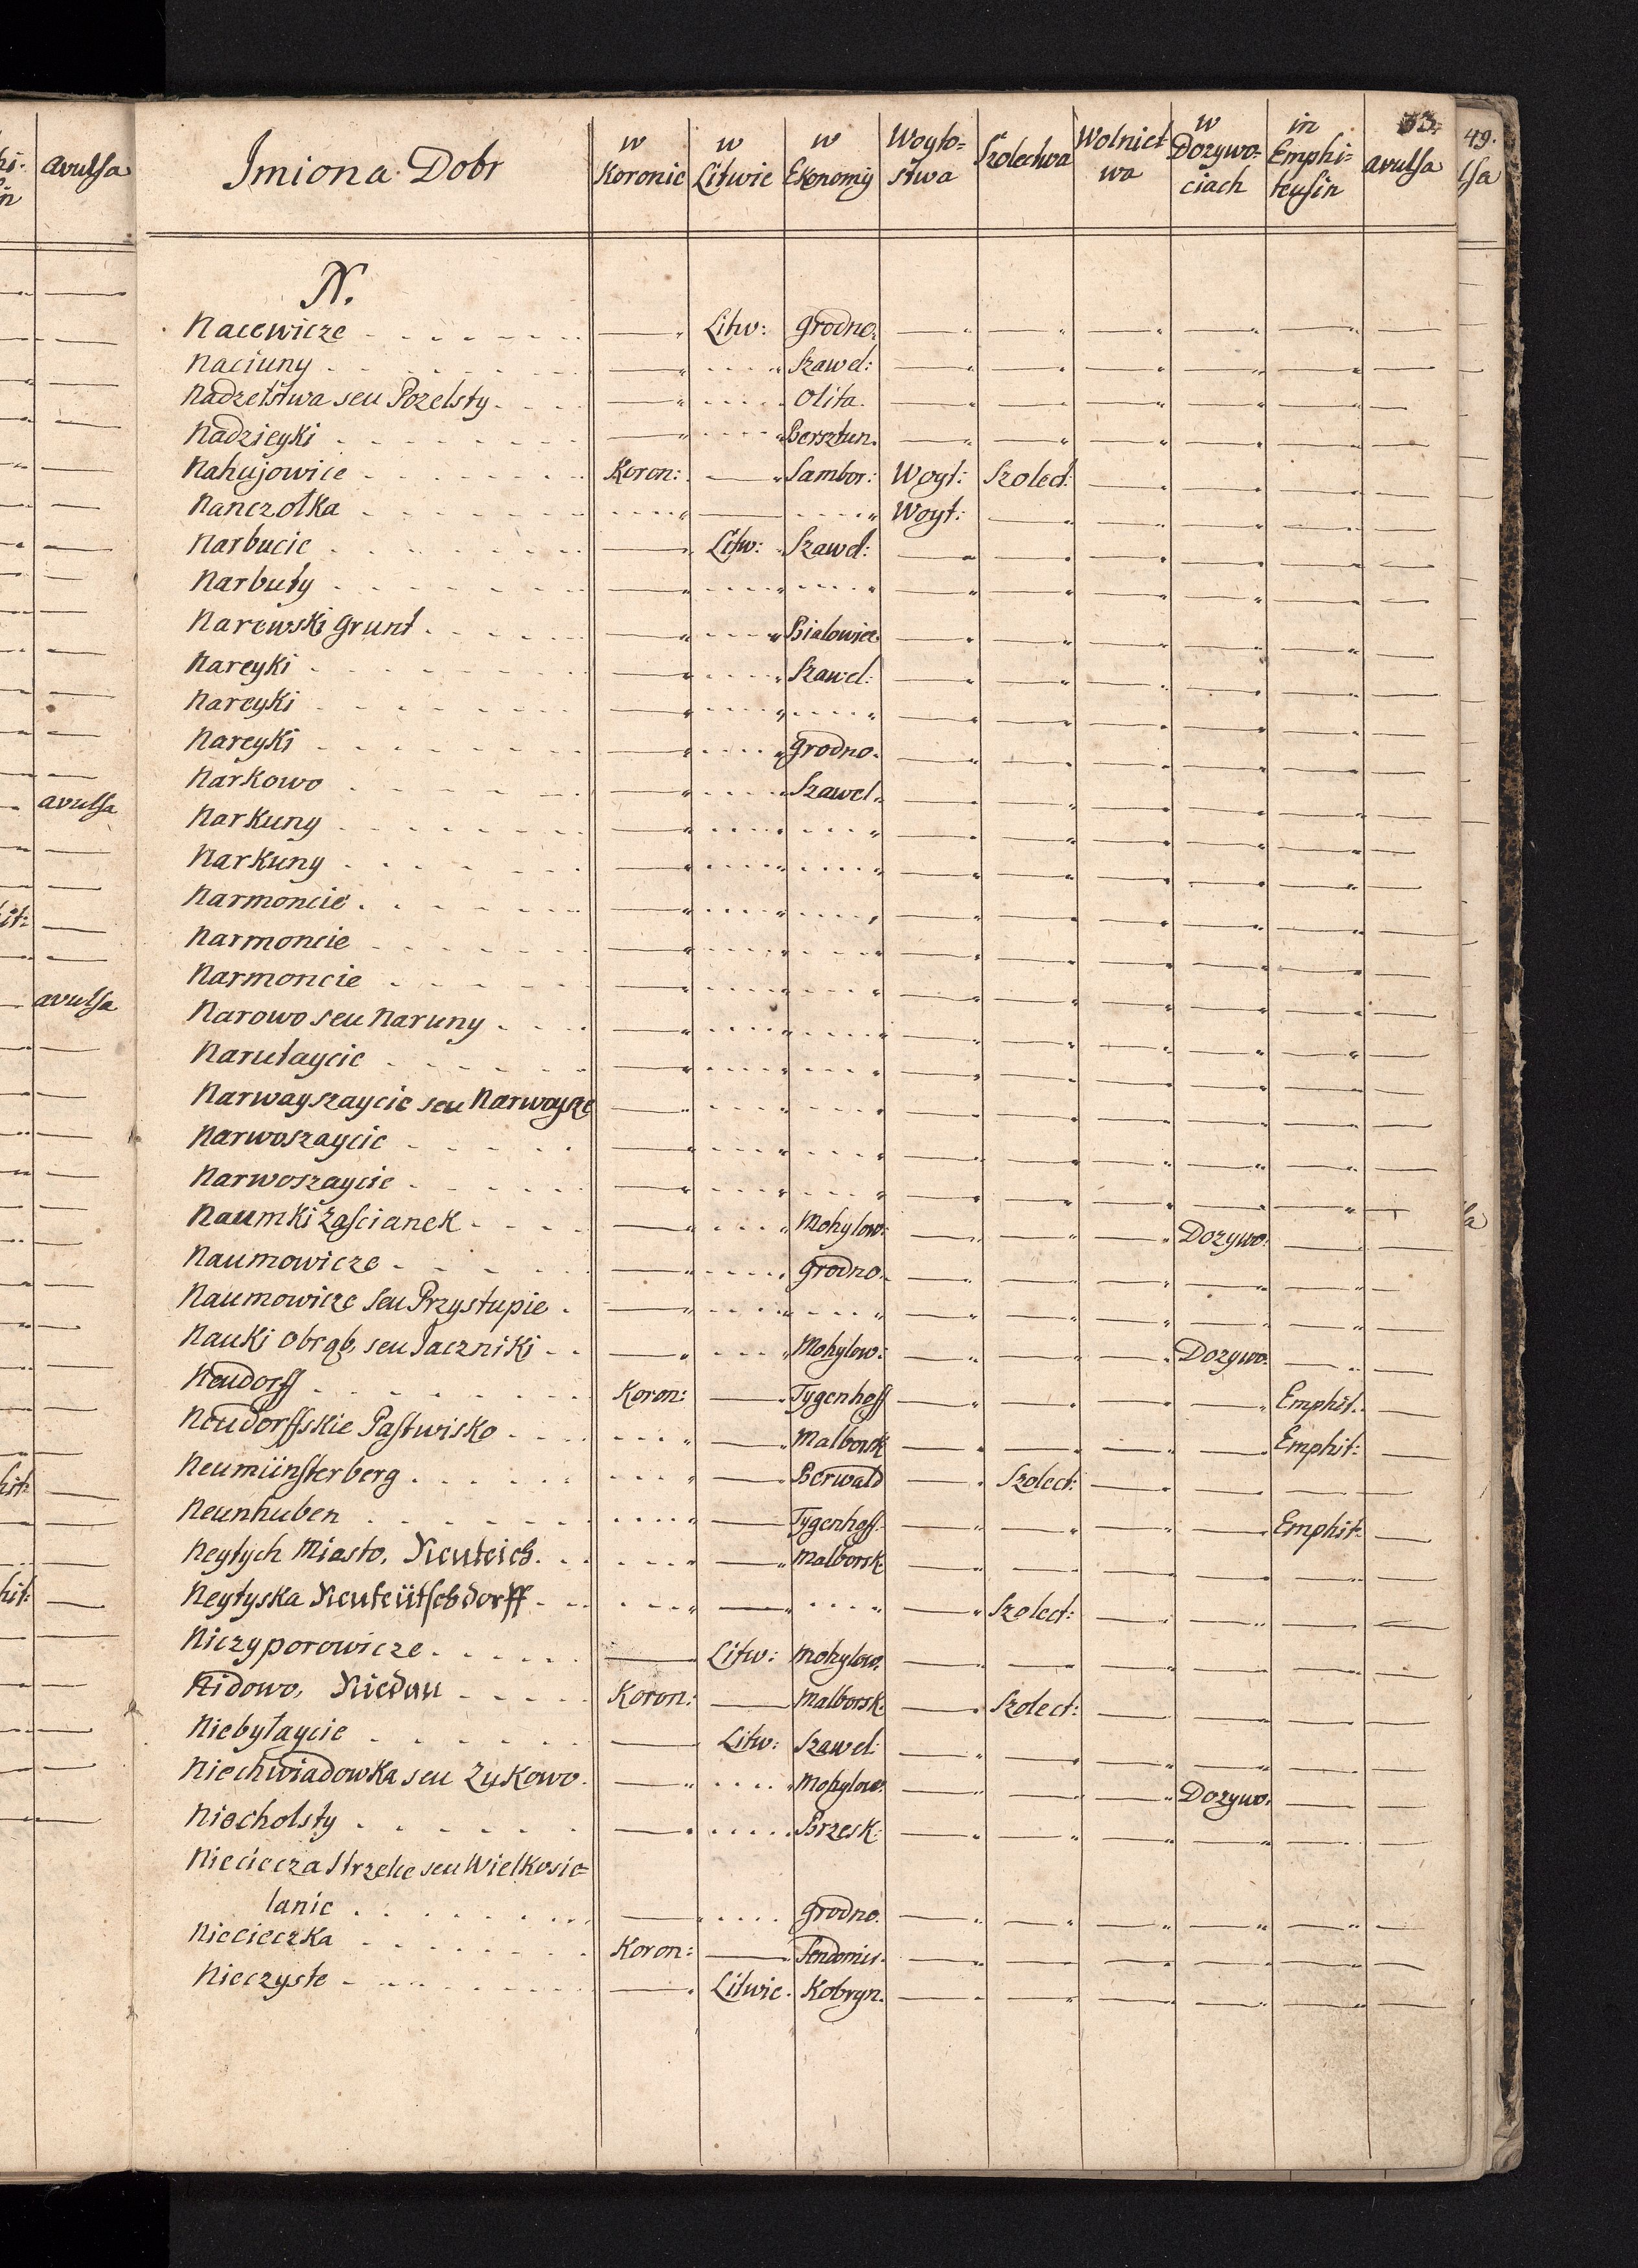 33.
Imiona Dobr | w Koronie | w Litwie | w Ekonomij | Woyto=stwa | Szolectwa | Wolnict wa | w Dozywo=ciach | in Emphi=teusin | avulsa
N.
Nacewicze | — | Litw: | Grodno. | — | — | — | — | — | —
Naciuny | — | " | Szawel: | — | — | — | — | — | —
Nadzelstwa seu Pozelsty | — | " | Olita. | — | — | — | — | — | —
Nadzieyki | — | " | Bersztun. | — | — | — | — | — | —
Nahujowice | Koron: | — | Sambor: | Woyt: | Szolect: | — | — | — | —
Nanczolka | " | — | " | Woyt: | — | — | — | — | —
Narbucie | — | Litw: | Szawel: | — | — | — | — | — | —
Narbuty | — | " | " | — | — | — | — | — | —
Narewski Grunt | — | " | Bialowiez. | — | — | — | — | — | —
Nareyki | — | " | Szawel: | — | — | — | — | — | —
Nareyki | — | " | " | — | — | — | — | — | —
Nareyki | — | " | Grodno. | — | — | — | — | — | —
Narkowo | — | " | Szawel. | — | — | — | — | — | —
Narkuny | — | " | " | — | — | — | — | — | —
Narkuny | — | " | " | — | — | — | — | — | —
Narmoncie | — | " | " | — | — | — | — | — | —
Narmoncie | — | " | " | — | — | — | — | — | —
Narmoncie | — | " | " | — | — | — | — | — | —
Narowo seu Naruny | — | " | " | — | — | — | — | — | —
Narutaycie | — | " | " | — | — | — | — | — | —
Narwayszaycie seu Narwoysze | — | " | " | — | — | — | — | — | —
Narwoszaycie | — | " | " | — | — | — | — | — | —
Narwoszaycie | — | " | " | — | — | — | — | — | —
Naumki Zascianek | — | " | Mohylow: | — | — | — | Dozywo: | — | —
Naumowicze | — | " | Grodno. | — | — | — | — | — | —
Naumowicze seu Przystupie | — | " | " | — | — | — | — | — | —
Nauki Obrąb, seu Paczniki | — | " | Mohylow: | — | — | — | Dozywo. | — | —
Neudorff | Koron: | — | Tygenhoff | — | — | — | — | Emphit. | —
Neudorffskie Pastwisko | " | — | Malborsk | — | — | — | — | Emphit: | —
Neumünsterberg | " | — | Berwald | — | Szolect: | — | — | — | —
Neunhuben | " | — | Tygenhoff. | — | — | — | — | Emphit: | —
Neytych Miasto, Neuteich. | " | — | Malborsk. | — | — | — | — | — | —
Neytyska Neuteütschdorff | " | — | " | — | Szolect: | — | — | — | —
Niczyporowicze | — | Litw: | Mohylow. | — | — | — | — | — | —
Nidowo, Niedau | Koron: | — | Malborsk. | — | Szolect: | — | — | — | —
Niebytaycie | — | Litw: | Szawel: | — | — | — | — | — | —
Niechwiadowka seu Zukowo | — | " | Mohylow. | — | — | — | Dozywo. | — | —
Niecholsty | — | " | Brzesk: | — | — | — | — | — | —
Nieciecza Strzelce seu Wielkosie=
lanie | — | " | Grodno. | — | — | — | — | — | —
Niecieczka | Koron: | — | Sendomir. | — | — | — | — | — | —
Nieczyste | — | Litwie. | Kobryn. | — | — | — | — | — | —
avulsa
avulsa
avulsa
49.